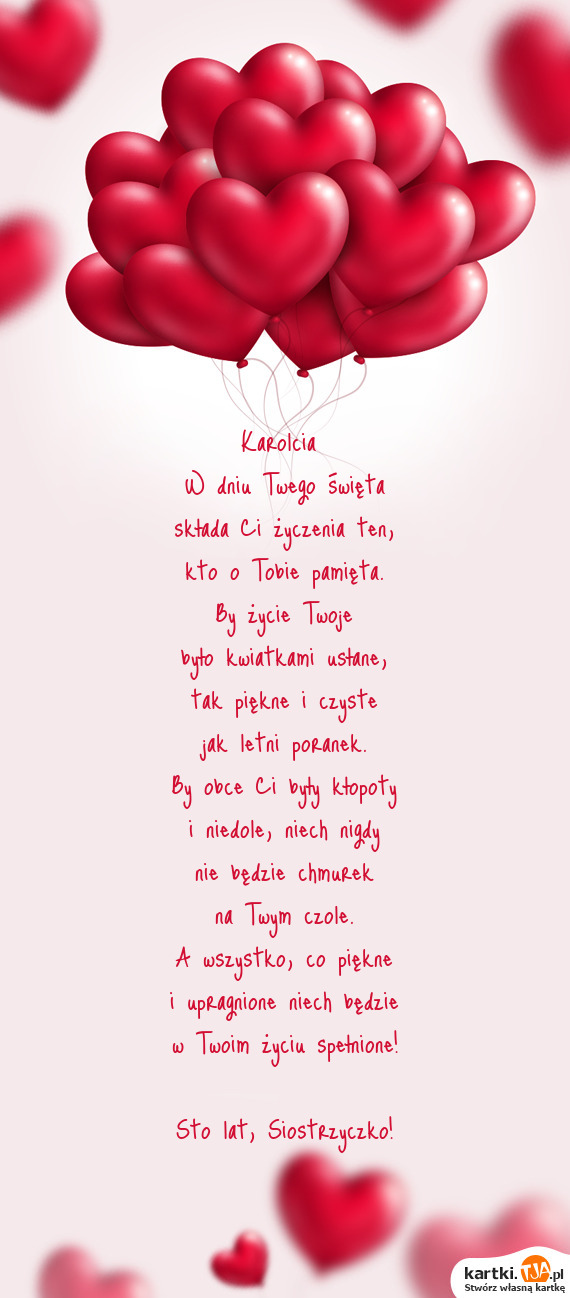 Karolcia
W dniu Twego święta
składa Ci życzenia ten,
kto o Tobie pamięta.
By życie Twoje
było kwiatkami usłane,
tak piękne i czyste
jak letni poranek.
By obce Ci były kłopoty
i niedole, niech nigdy
nie będzie chmurek
na Twym czole.
A wszystko, co piękne
i upragnione niech będzie
w Twoim życiu spełnione!
Sto lat, Siostrzyczko!
kartki.TJA.pl
Stwórz własną kartkę